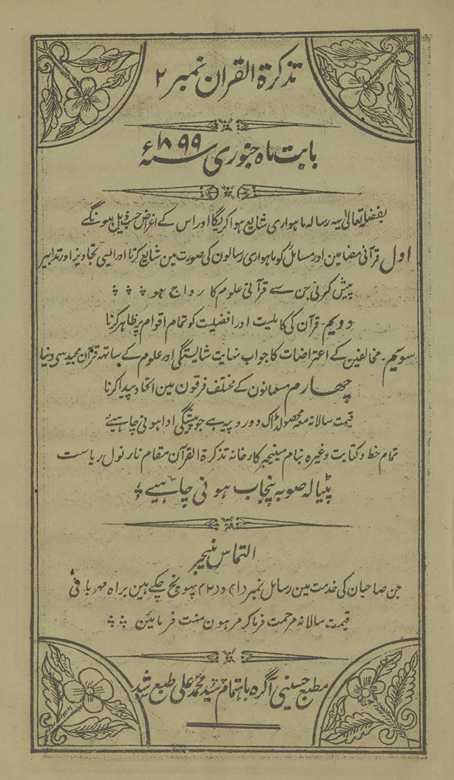 تذکرۃ القرآن نمبر ۲
بابت ماہ جنوری ۱۸۹۹ سنۂ ء
بفضلِ تعالیٰ یہ رسالہ ماہواری شایع ہوا کریگا اور اس کے اغراض حسب ذیل ہونگے
اول قرآنی مضامین اور مسائل کو ماہواری رسالون کی صورت مین شایع کرنا اور ایسی تجاویز اور تدابیر
پیش کرنی جن سے قرآنی علوم کا رواج ہو
دویم۔ قرآن کی کاملیت اور افضلیت کو تمام اقوام پر ظاہر کرنا
سویم۔ مخالفین کے اعتراضات کا جواب نہایت شایستگی اور علوم کے ساتھ قرآن مجید سی دینا
چہارم مسلمانون کے مختلف فرقون مین اتحاد پیدا کرنا
قیمت سالانہ معہ محصولڈاک دو روپیہ ہے جو پیشگی ادا ہونی چاہیئے
تمام خط و کتابت وغیرہ بنام مینیجر کارخانہ تذکرۃ القرآن مقام نارنول ریاست
پٹیالہ صوبہ پنجاب ہونی چاہیے
التماس منیجر
جن صاحبان کی خدمت مین رسائل نمبر (۱) و (۲) پہونچ چکے ہین براہ مہربانی
قیمت سالانہ مرحمت فرماکر مرہون منت فرمائین
مطبع حسینی آگرہ باہتمام سید محمد علی طبع شد